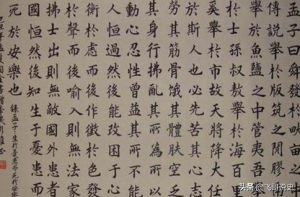 孟子曰舜發於畎畝之中
傅說舉於版築之間膠鬲
舉於魚鹽之中管夷吾舉
於士孫叔敖舉於海百里
奚舉於市故天將降大任
於斯人也必先苦其心志
勞其筋骨餓其體膚空乏
其身行拂亂其所為所以
動心忍性曾益其所不能
人恒過然後能改困於心
衡於慮而後作徵於色發
於聲而後喻入則無法家
拂士出則無敵國外患者
國恒然後知生於憂患而
死於安樂也